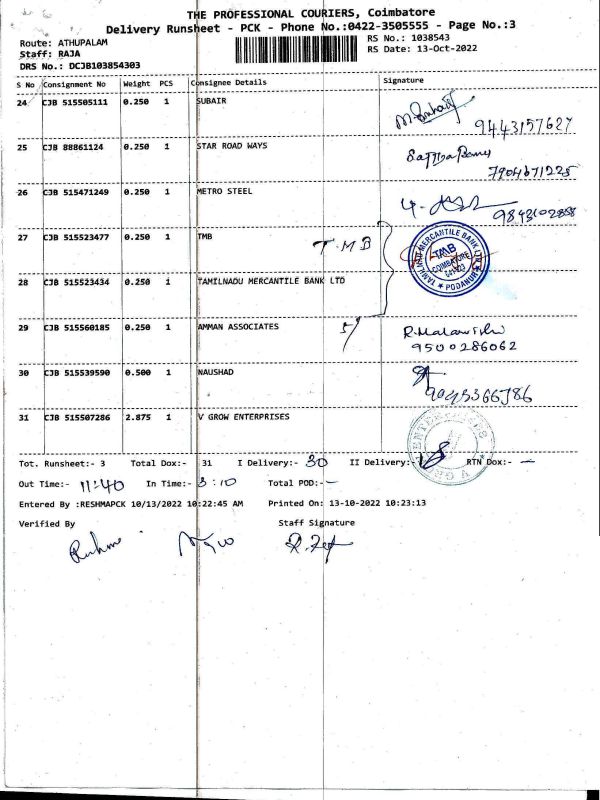 THE PROFESSIONAL COURIERS, Coimbatore
Delivery Runsheet - PCK - Phone No.:0422-3505555 - Page No.:3
Route: ATHUPALAM
Staff: RAJA
DRS No.: DCJB103854303
RS No.: 1038543
RS Date: 13-Oct-2022
S No Consignment No Weight PCS Consignee Details Signature
24 CJB 515505111 0.250 1 SUBAIR
9443157627
25 CJB 88861124 0.250 1 STAR ROAD WAYS
7904671225
26 CJB 515471249 0.250 1 METRO STEEL
9843102858
27 CJB 515523477 0.250 1 TMB T.M.B
TAMILNAD MERCANTILE BANK LTD
TMB
COIMBATORE
641023
★ PODANUR ★
28 CJB 515523434 0.250 1 TAMILNADU MERCANTILE BANK LTD
29 CJB 515560185 0.250 1 AMMAN ASSOCIATES
9500286062
30 CJB 515539590 0.500 1 NAUSHAD
31 CJB 515507286 2.875 1 V GROW ENTERPRISES
V GROW ENTERPRISES
Tot. Runsheet:- 3 Total Dox:- 31 I Delivery:- 30 II Delivery:- 18 RTN Dox:- —
Out Time:- 11:40 In Time:- 3:10 Total POD:- —
Entered By :RESHMAPCK 10/13/2022 10:22:45 AM Printed On: 13-10-2022 10:23:13
Verified By Staff Signature